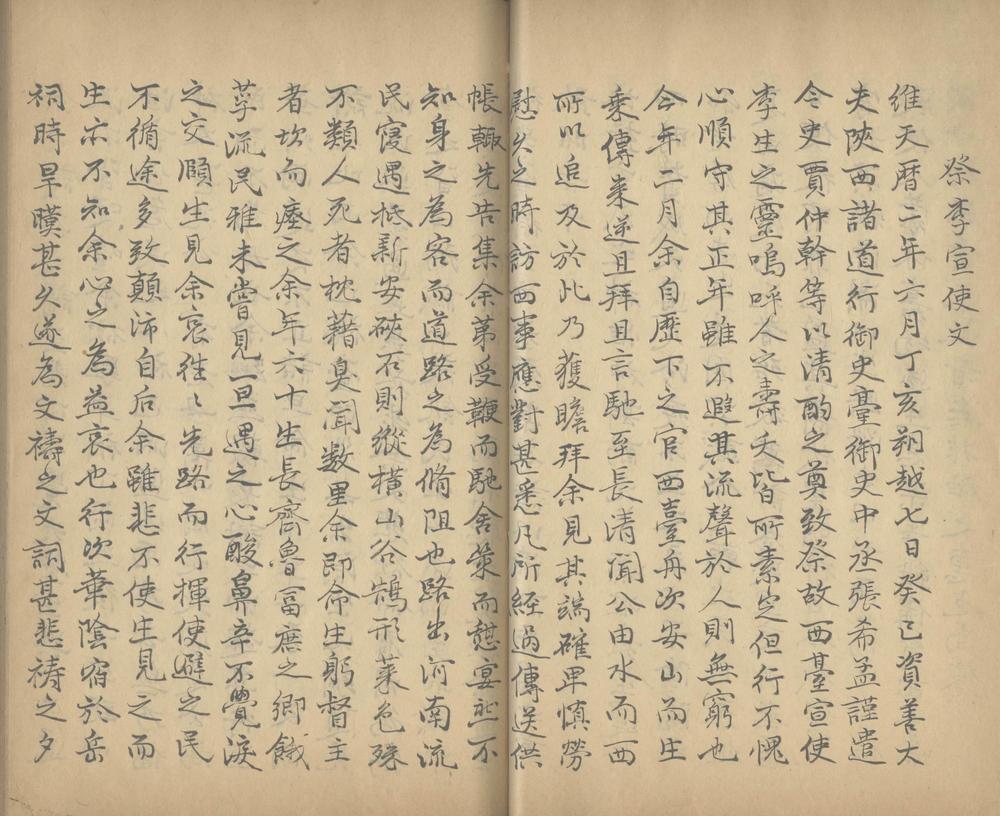 祭李宣使文
維天曆二年六月丁亥朔越七日癸巳資善大
夫陝西諸道行御史臺御史中丞張希孟謹遣
令史賈仲幹等以清酌之奠致祭故西臺宣使
李生之靈嗚呼人之壽夭皆所素定但行不愧
心順守其正年雖不遐其流聲於人則無窮也
今年二月余自歷下之官西臺舟次安山而生
乘傳來逆且拜且言馳至長清聞公由水而西
所以追及於此乃獲瞻拜余見其端確卑慎勞
慰久之時訪西事應對甚悉凡所經過傳送供
帳輙先告集余第受鞭而馳舍策而憩宴然不
知身之為客而道路之為脩阻也路出河南流
民寖遇抵新安硤石則縱橫山谷鵠形菜色殊
不類人死者枕藉臭聞數里余即命生躬督主
者坎而瘞之余年六十生長齊魯冨庶之鄉餓
莩流民雅未嘗見一旦遇之心酸鼻辛不覺淚
之交頤生見余哀往〻先路而行揮使避之民
不循途多致顛沛自后余雖悲不使生見之而
生亦不知余心之為益哀也行次華陰宿於岳
祠時旱暵甚久遂為文禱之文詞甚悲禱之夕